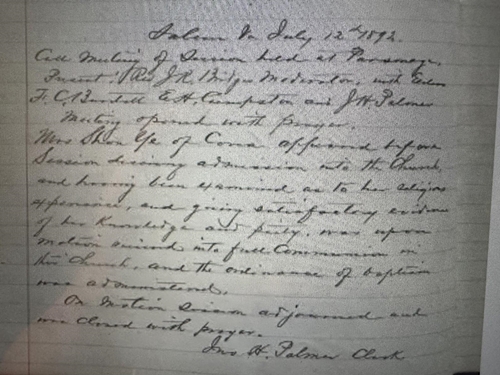 Salem Va July 12th 1892.
Call Meeting of Session held at Parsonage.
Present: Rev J. R. Bridges Moderator, with Elders
F. C. Burdett E. H. Cumpston and J H. Palmer
Meeting opened with prayer.
Mrs Shon Ye of Corea appeared before
Session desiring admission into the Church,
and having been examined as to her religious
experience, and giving satisfactory evidence
of her Knowledge and piety, was upon
motion received into full Communion in
this Church, and the ordinance of baptism
was administered.
On motion session adjourned and
was closed with prayer.
Jno. H. Palmer Clerk